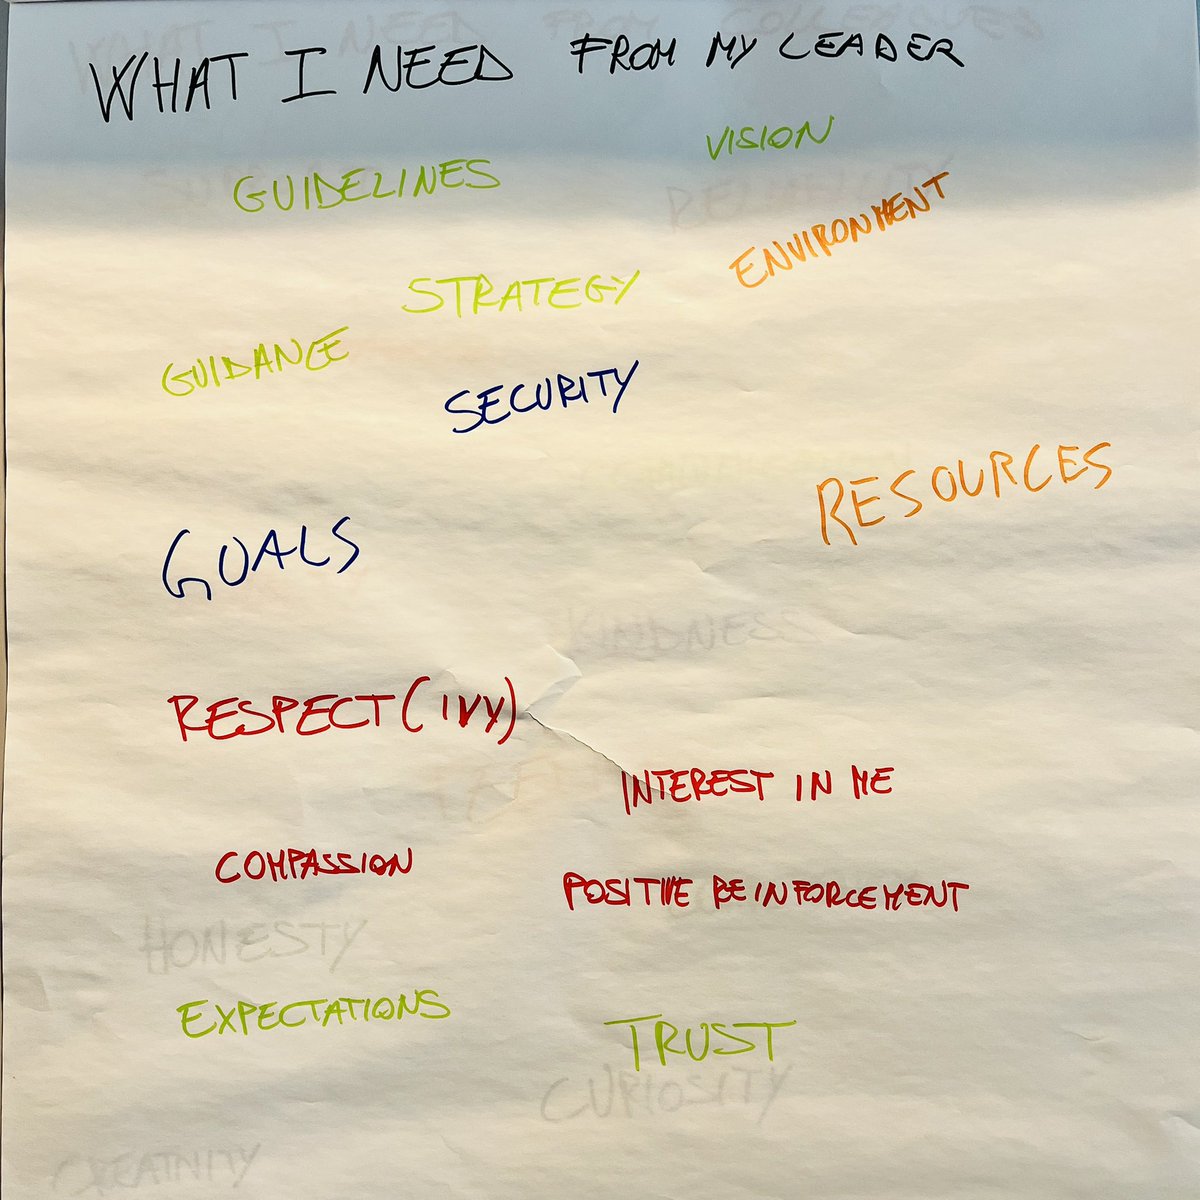 WHAT I NEED FROM MY LEADER
VISION
GUIDELINES
ENVIRONMENT
STRATEGY
GUIDANCE
SECURITY
RESOURCES
GOALS
KINDNESS
RESPECT (IVY)
INTEREST IN ME
COMPASSION
POSITIVE REINFORCEMENT
HONESTY
EXPECTATIONS
TRUST
CURIOSITY
CREATIVITY